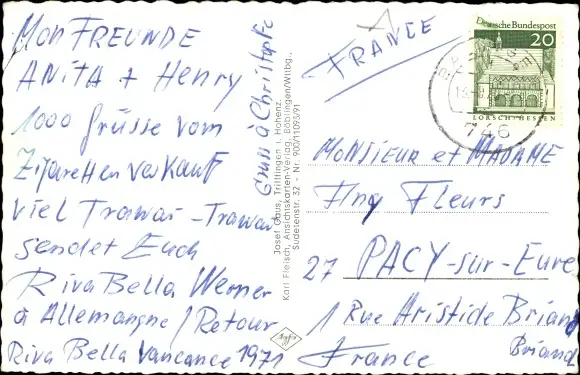 Mon FREUNDE
ANiTA + Henry
1000 Grüsse vom
Zigaretten Verkauf
viel Trawai - Trawai
sendet Euch
Riva Bella Werner
a Allemangne / Retour
Riva Bella Vancance 1971
Gruss à Christopfe
Josef Gaus, Trillfingen i. Hohenz.
Karl Fleisch, Ansichtskarten-Verlag, Böblingen/Wttbg.,
Sudetenstr. 32 - Nr. 900/11093/91
Agfa
FRANCE
Deutsche Bundespost
20
LORSCH · HESSEN
746
MONSiEUR et MADAME
Fleurs
27 PACY-sur-Eure
1 Rue Aristide Briand
Briand
France